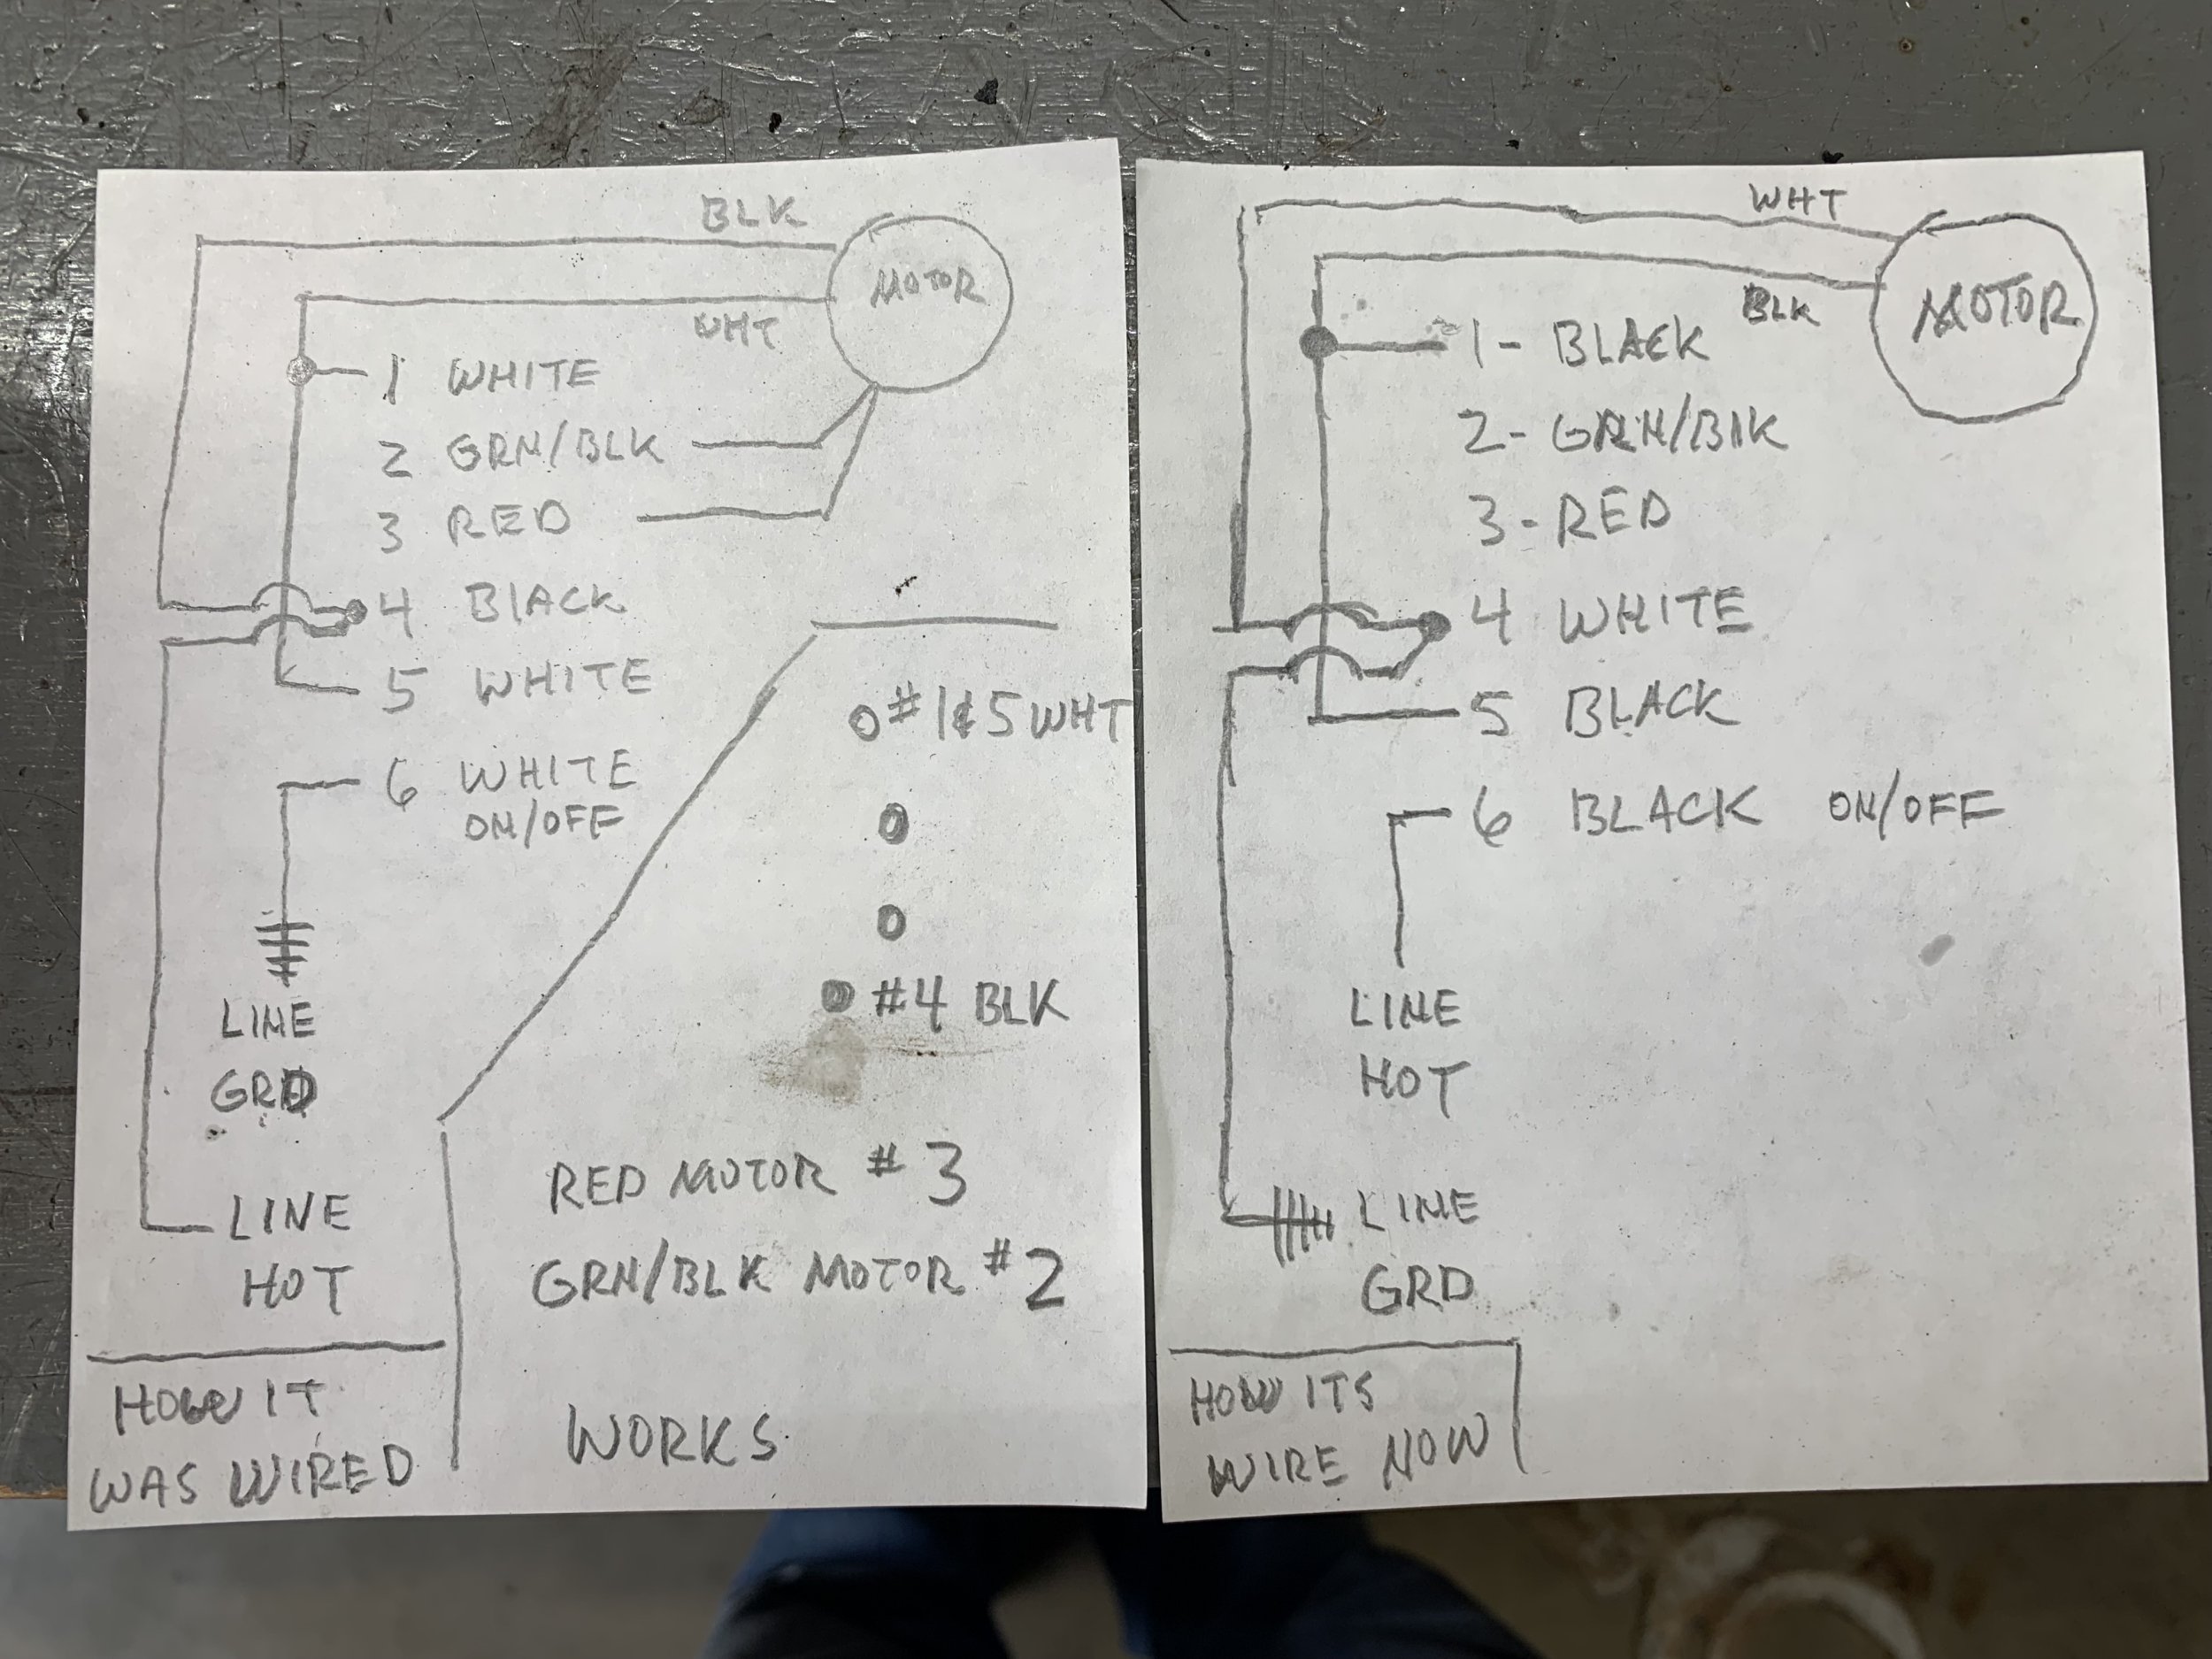 BLK
MOTOR
WHT
1 WHITE
2 GRN/BLK
3 RED
4 BLACK
5 WHITE
6 WHITE
ON/OFF
LINE
GRD
LINE
HOT
HOW IT
WAS WIRED
#1&5 WHT
#4 BLK
RED MOTOR #3
GRN/BLK MOTOR #2
WORKS
WHT
BLK
MOTOR
1- BLACK
2- GRN/BLK
3- RED
4 WHITE
5 BLACK
6 BLACK ON/OFF
LINE
HOT
LINE
GRD
HOW ITS
WIRE NOW